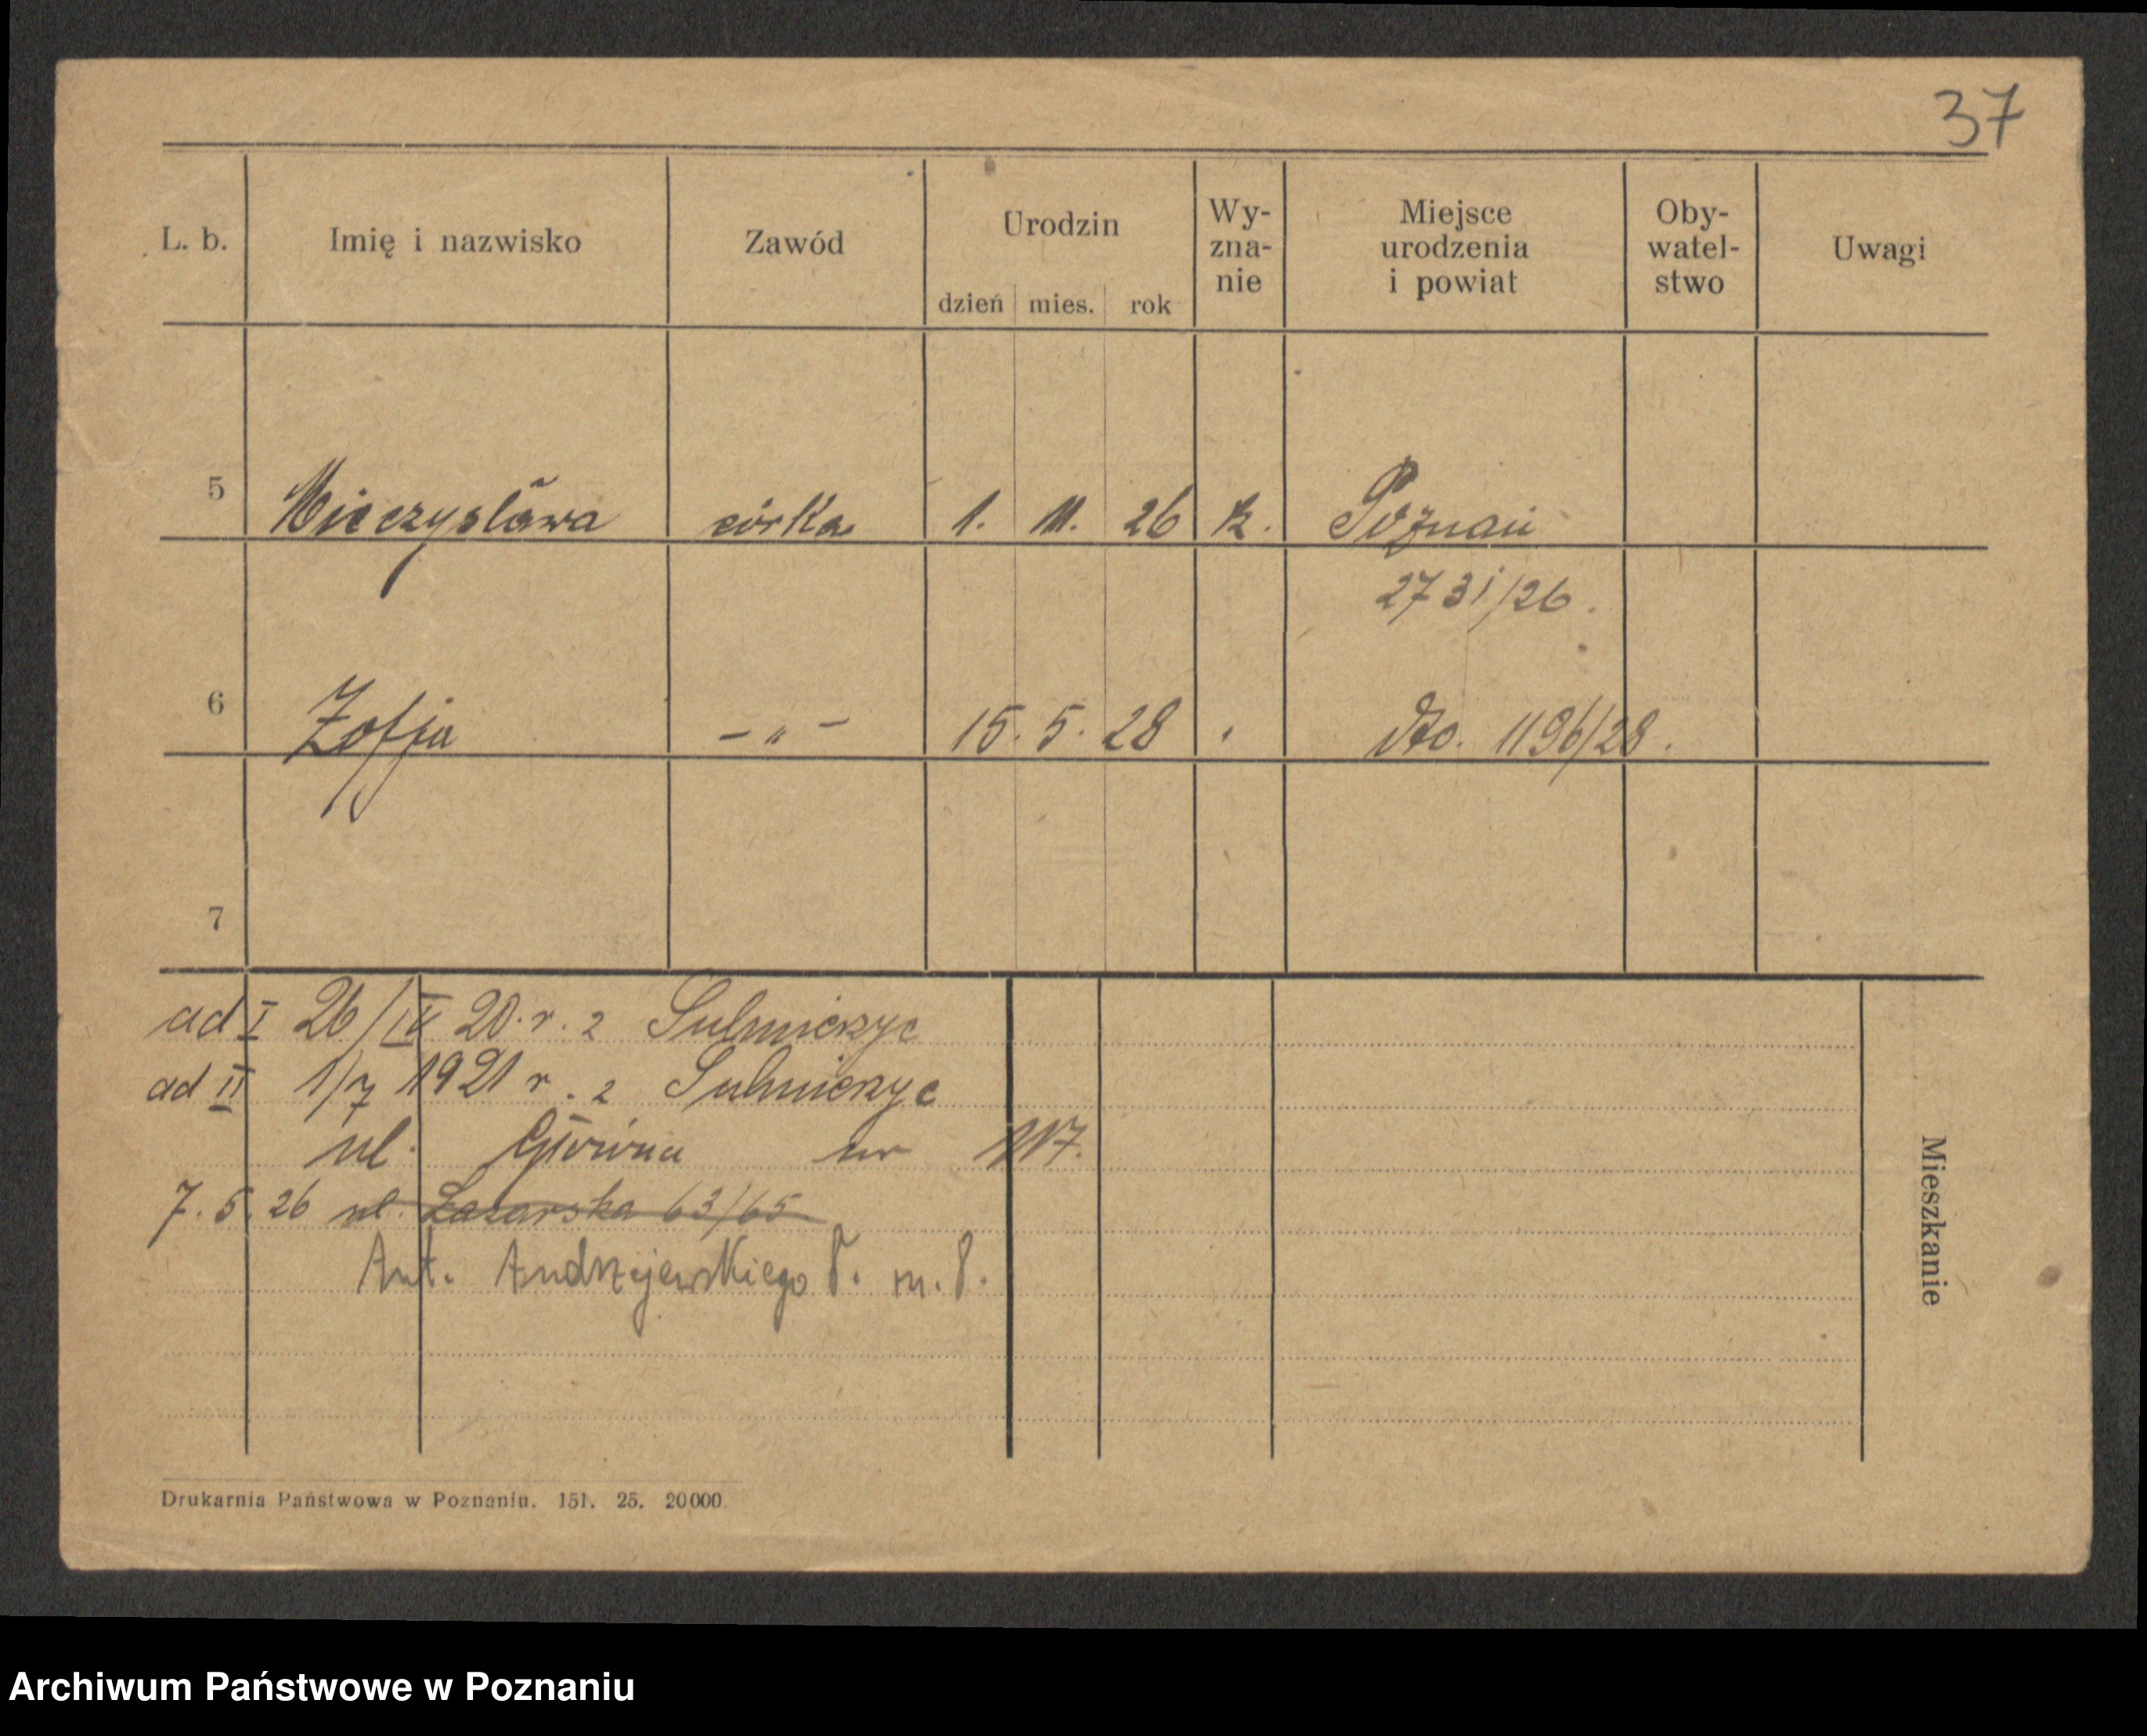 37
L. b. Imię i nazwisko Zawód Urodzin Wy-zna-nie Miejsce urodzenia i powiat Oby-watel-stwo Uwagi
dzień mies. rok
5 Mieczysława córka 1. 11. 26 k. Poznań
2731/26.
6 Zofja - " - 15. 5. 28 " dto. 1196/28.
7
ad I 26/IV 20. r. z Sulmierzyc
ad II 1/7 1921 r. z Sulmierzyc
ul. Główna nr 117.
7. 5. 26 ul. Łazarska 63/65
Ant. Andrzejewskiego 8. m. 8.
Mieszkanie
Drukarnia Państwowa w Poznaniu. 151. 25. 20000.
Archiwum Państwowe w Poznaniu